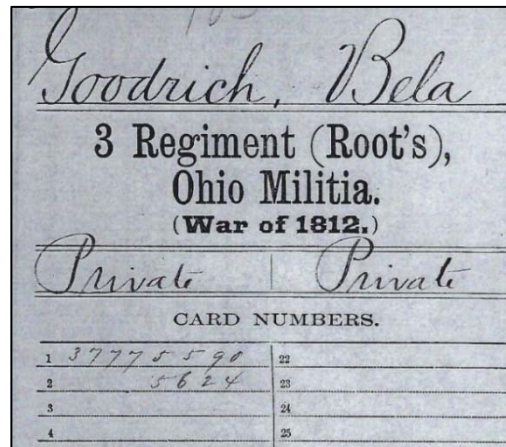 Goodrich, Bela
3 Regiment (Root's),
Ohio Militia.
(War of 1812.)
Private Private
CARD NUMBERS.
1 37775590 22
2 5624 23
3 24
4 25